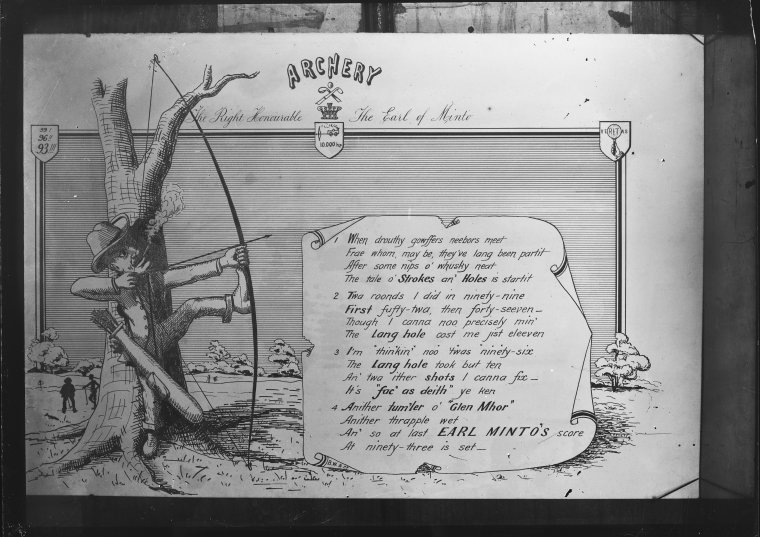 ARCHERY
The Right Honourable The Earl of Minto
99!
96!!
93!!!
10,000 h.p.
VERITAS
1 When drouthy gowffers neebors meet
Frae whom, may be, they've lang been partit
After some nips o' whusky neat
The tale o' Strokes an' Holes is startit
2 Twa roonds I did in ninety-nine
First fufty-twa, then forty-seeven—
Though I canna noo precisely min'
The Lang hole cost me jist eleeven
3 I'm thinkin' noo 'twas ninety-six
The Lang hole took but ten
An' twa ither shots I canna fix—
It's "fac' as deith" ye ken
4 Anither tum'ler o' "Glen Mhor"
Anither thrapple wet
An' so at last EARL MINTO'S score
At ninety-three is set—